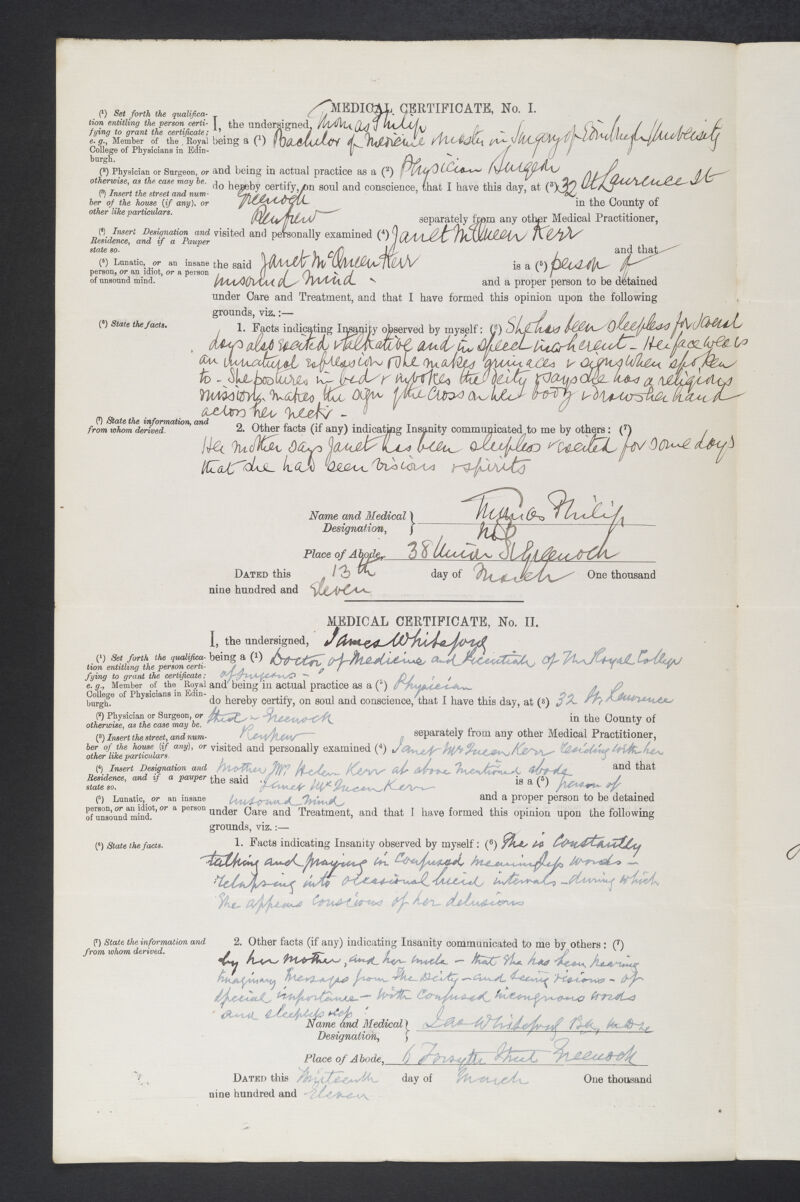 MEDICAL CERTIFICATE, No. I.
(¹) Set forth the qualification entitling the person certifying to grant the certificate; e.g., Member of the Royal College of Physicians in Edinburgh.
I, the undersigned, Thomas Philip
being a (¹) Bachelor of Medicine & Master in Surgery of Edinburgh University
(²) Physician or Surgeon, or otherwise, as the case may be.
and being in actual practice as a (²) Physician Surgeon
do hereby certify, on soul and conscience, that I have this day, at (³) 32 St Laurence St
(³) Insert the street and number of the house (if any), or other like particulars.
Greenock in the County of
Renfrew separately from any other Medical Practitioner,
(⁴) Insert Designation and Residence, and if a Pauper state so.
visited and personally examined (⁴) Janet McQueen Kerr
and that
(⁵) Lunatic, or an insane person, or an idiot, or a person of unsound mind.
the said Janet McQueen Kerr is a (⁵) person of
unsound mind - and a proper person to be detained
under Care and Treatment, and that I have formed this opinion upon the following
grounds, viz.:—
(⁶) State the facts.
1. Facts indicating Insanity observed by myself: (⁶) She has been sleepless for several
days also excited & talkative and in speech incoherent - Her face wears
an unnatural expression & she makes grimaces & signs when spoken
to - She postures in bed & invokes the Deity & says she has a religious
mission, makes the sign of the Cross on her body & draws her hand
across her neck -
(⁷) State the information, and from whom derived.
2. Other facts (if any) indicating Insanity communicated to me by others: (⁷)
Her mother says Janet has been sleepless & excited for some days
that she had seen visions & spirits
Name and Medical Designation, Thomas Philip
M.B.
Place of Abode, 38 Union St Greenock
DATED this 13th day of March One thousand
nine hundred and Eleven
MEDICAL CERTIFICATE, No. II.
I, the undersigned, James Whiteford
(¹) Set forth the qualification entitling the person certifying to grant the certificate; e.g., Member of the Royal College of Physicians in Edinburgh.
being a (¹) Doctor of Medicine and Licentiate of The Royal College
of Surgeons -
and being in actual practice as a (²) Physician
do hereby certify, on soul and conscience, that I have this day, at (³) 32 St. Lawrence
(²) Physician or Surgeon, or otherwise, as the case may be.
Street - Greenock in the County of
(³) Insert the street, and number of the house (if any), or other like particulars.
Renfrew separately from any other Medical Practitioner,
visited and personally examined (⁴) Janet McQueen Kerr residing with her
(⁴) Insert Designation and Residence, and if a pauper state so.
Mother Mrs Helen Kerr at above mentioned abode and that
the said Janet McQueen Kerr is a (⁵) person of
(⁵) Lunatic, or an insane person, or an idiot, or a person of unsound mind.
unsound mind and a proper person to be detained
under Care and Treatment, and that I have formed this opinion upon the following
grounds, viz.:—
(⁶) State the facts.
1. Facts indicating Insanity observed by myself: (⁶) She is constantly
talking and praying in confused meaningless words -
relapsing into occasional lucid intervals - during which
She appears conscious of her delusions
(⁷) State the information and from whom derived.
2. Other facts (if any) indicating Insanity communicated to me by others: (⁷)
by her mother, and her uncle - that she has been hearing
imaginary messages from The Deity - and seeing visions - of
special importance - with confused incongruous words
and sleeplessness
Name and Medical Designation, Jas Whiteford
Place of Abode, 6 Forsyth Street Greenock
DATED this Thirteenth day of March One thousand
nine hundred and Eleven